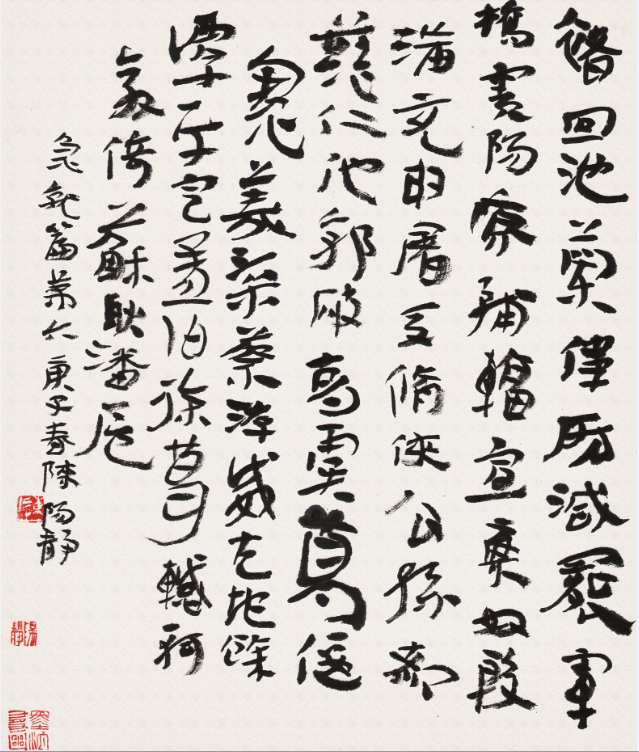 褚回池蘭偉房減罷軍
橋竇陽原輔輻宣棄奴殷
滿充申屠夏脩俠公孫都
慈仁他郭破高虞葛偃
憲義渠蔡游威左地餘
譚平定孟伯徐葛轗軻
敦倚蘇耿潘扈
急就篇第六 庚子春陳陽靜